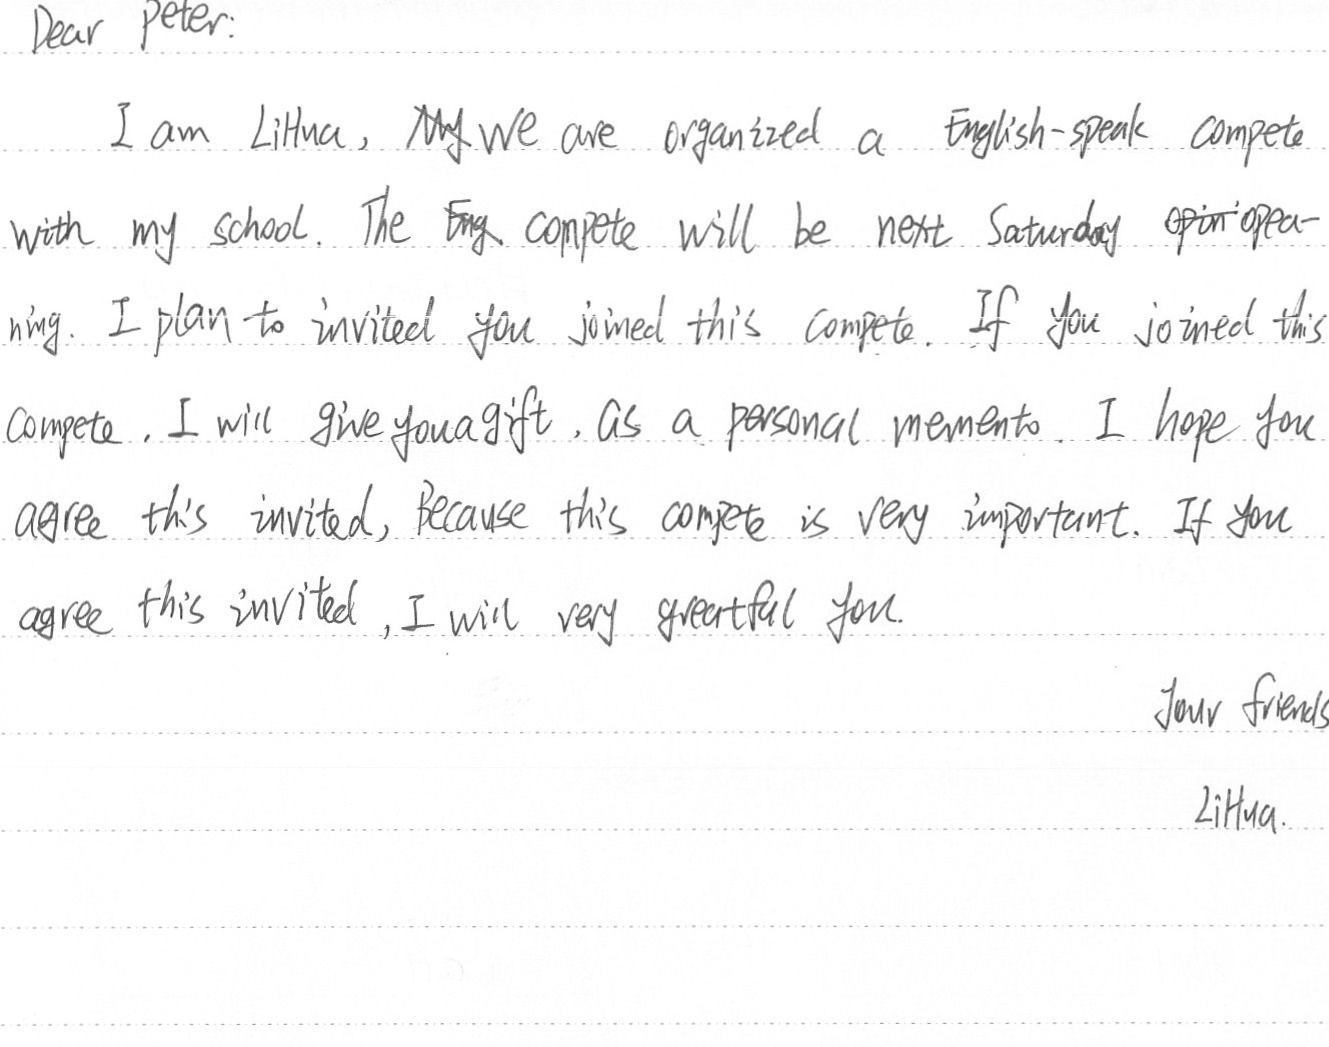 Dear Peter:
I am LiHua, We are organized a English-speak compete
with my school. The compete will be next Saturday opea-
ning. I plan to invited you joined this compete. If you joined this
compete. I will give you a gift. as a personal memento. I hope you
agree this invited, Because this compete is very important. If you
agree this invited, I will very greatful you.
Your friends
LiHua.